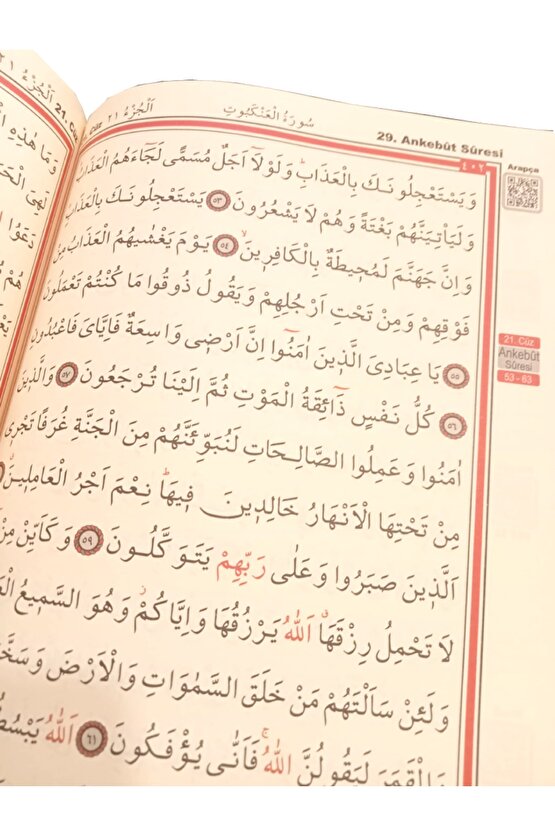 اَلْجُزْءُ ٢١ 21. Cüz
اَلْجُزْءُ ٢١
سُورَةُ الْعَنْكَبُوتِ
29. Ankebût Sûresi
٤٠٢
Arapça
21. Cüz
Ankebût
Sûresi
53 - 63
وَيَسْتَعْجِلُونَكَ بِالْعَذَابِ وَلَوْلَآ اَجَلٌ مُسَمًّى لَجَآءَهُمُ الْعَذَابُ
وَلَيَأْتِيَنَّهُمْ بَغْتَةً وَهُمْ لَا يَشْعُرُونَ ٥٣ يَسْتَعْجِلُونَكَ بِالْعَذَابِ
وَاِنَّ جَهَنَّمَ لَمُحِيطَةٌ بِالْكَافِرِينَ ٥٤ يَوْمَ يَغْشٰيهُمُ الْعَذَابُ مِنْ
فَوْقِهِمْ وَمِنْ تَحْتِ اَرْجُلِهِمْ وَيَقُولُ ذُوقُوا مَا كُنْتُمْ تَعْمَلُونَ
٥٥ يَا عِبَادِيَ الَّذِينَ اٰمَنُٓوا اِنَّ اَرْضِي وَاسِعَةٌ فَاِيَّايَ فَاعْبُدُونِ
٥٦ كُلُّ نَفْسٍ ذَآئِقَةُ الْمَوْتِ ثُمَّ اِلَيْنَا تُرْجَعُونَ ٥٧ وَالَّذِينَ
اٰمَنُوا وَعَمِلُوا الصَّالِحَاتِ لَنُبَوِّئَنَّهُمْ مِنَ الْجَنَّةِ غُرَفًا تَجْرِي
مِنْ تَحْتِهَا الْاَنْهَارُ خَالِدِينَ فِيهَا نِعْمَ اَجْرُ الْعَامِلِينَ
اَلَّذِينَ صَبَرُوا وَعَلٰى رَبِّهِمْ يَتَوَكَّلُونَ ٥٩ وَكَاَيِّنْ مِنْ
لَا تَحْمِلُ رِزْقَهَا اَللّٰهُ يَرْزُقُهَا وَاِيَّاكُمْ وَهُوَ السَّمِيعُ
وَلَئِنْ سَاَلْتَهُمْ مَنْ خَلَقَ السَّمٰوَاتِ وَالْاَرْضَ وَسَخَّرَ
وَالْقَمَرَ لَيَقُولُنَّ اللّٰهُ فَاَنّٰى يُؤْفَكُونَ ٦١ اَللّٰهُ يَبْسُطُ
وَمَا هٰذِهِ
لَهِيَ
دَعَوُا